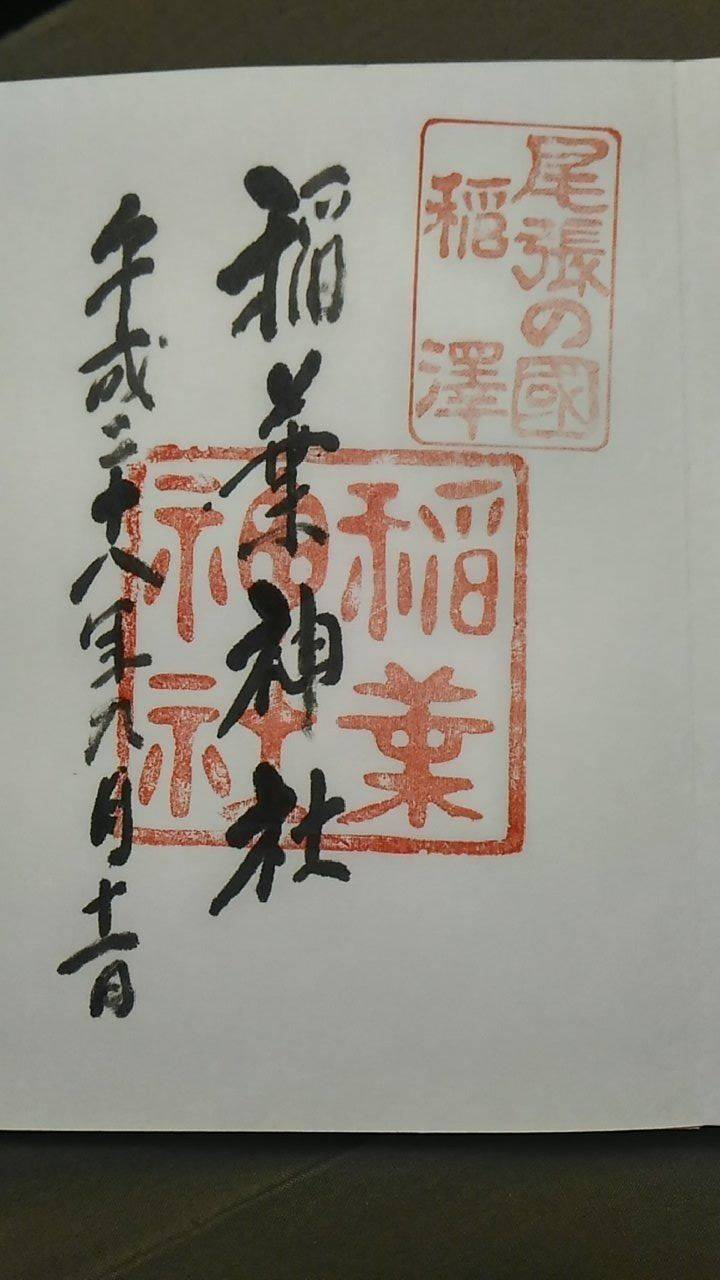 尾張の國
稲澤
稲葉
神社
稲葉神社
平成二十八年九月十一日